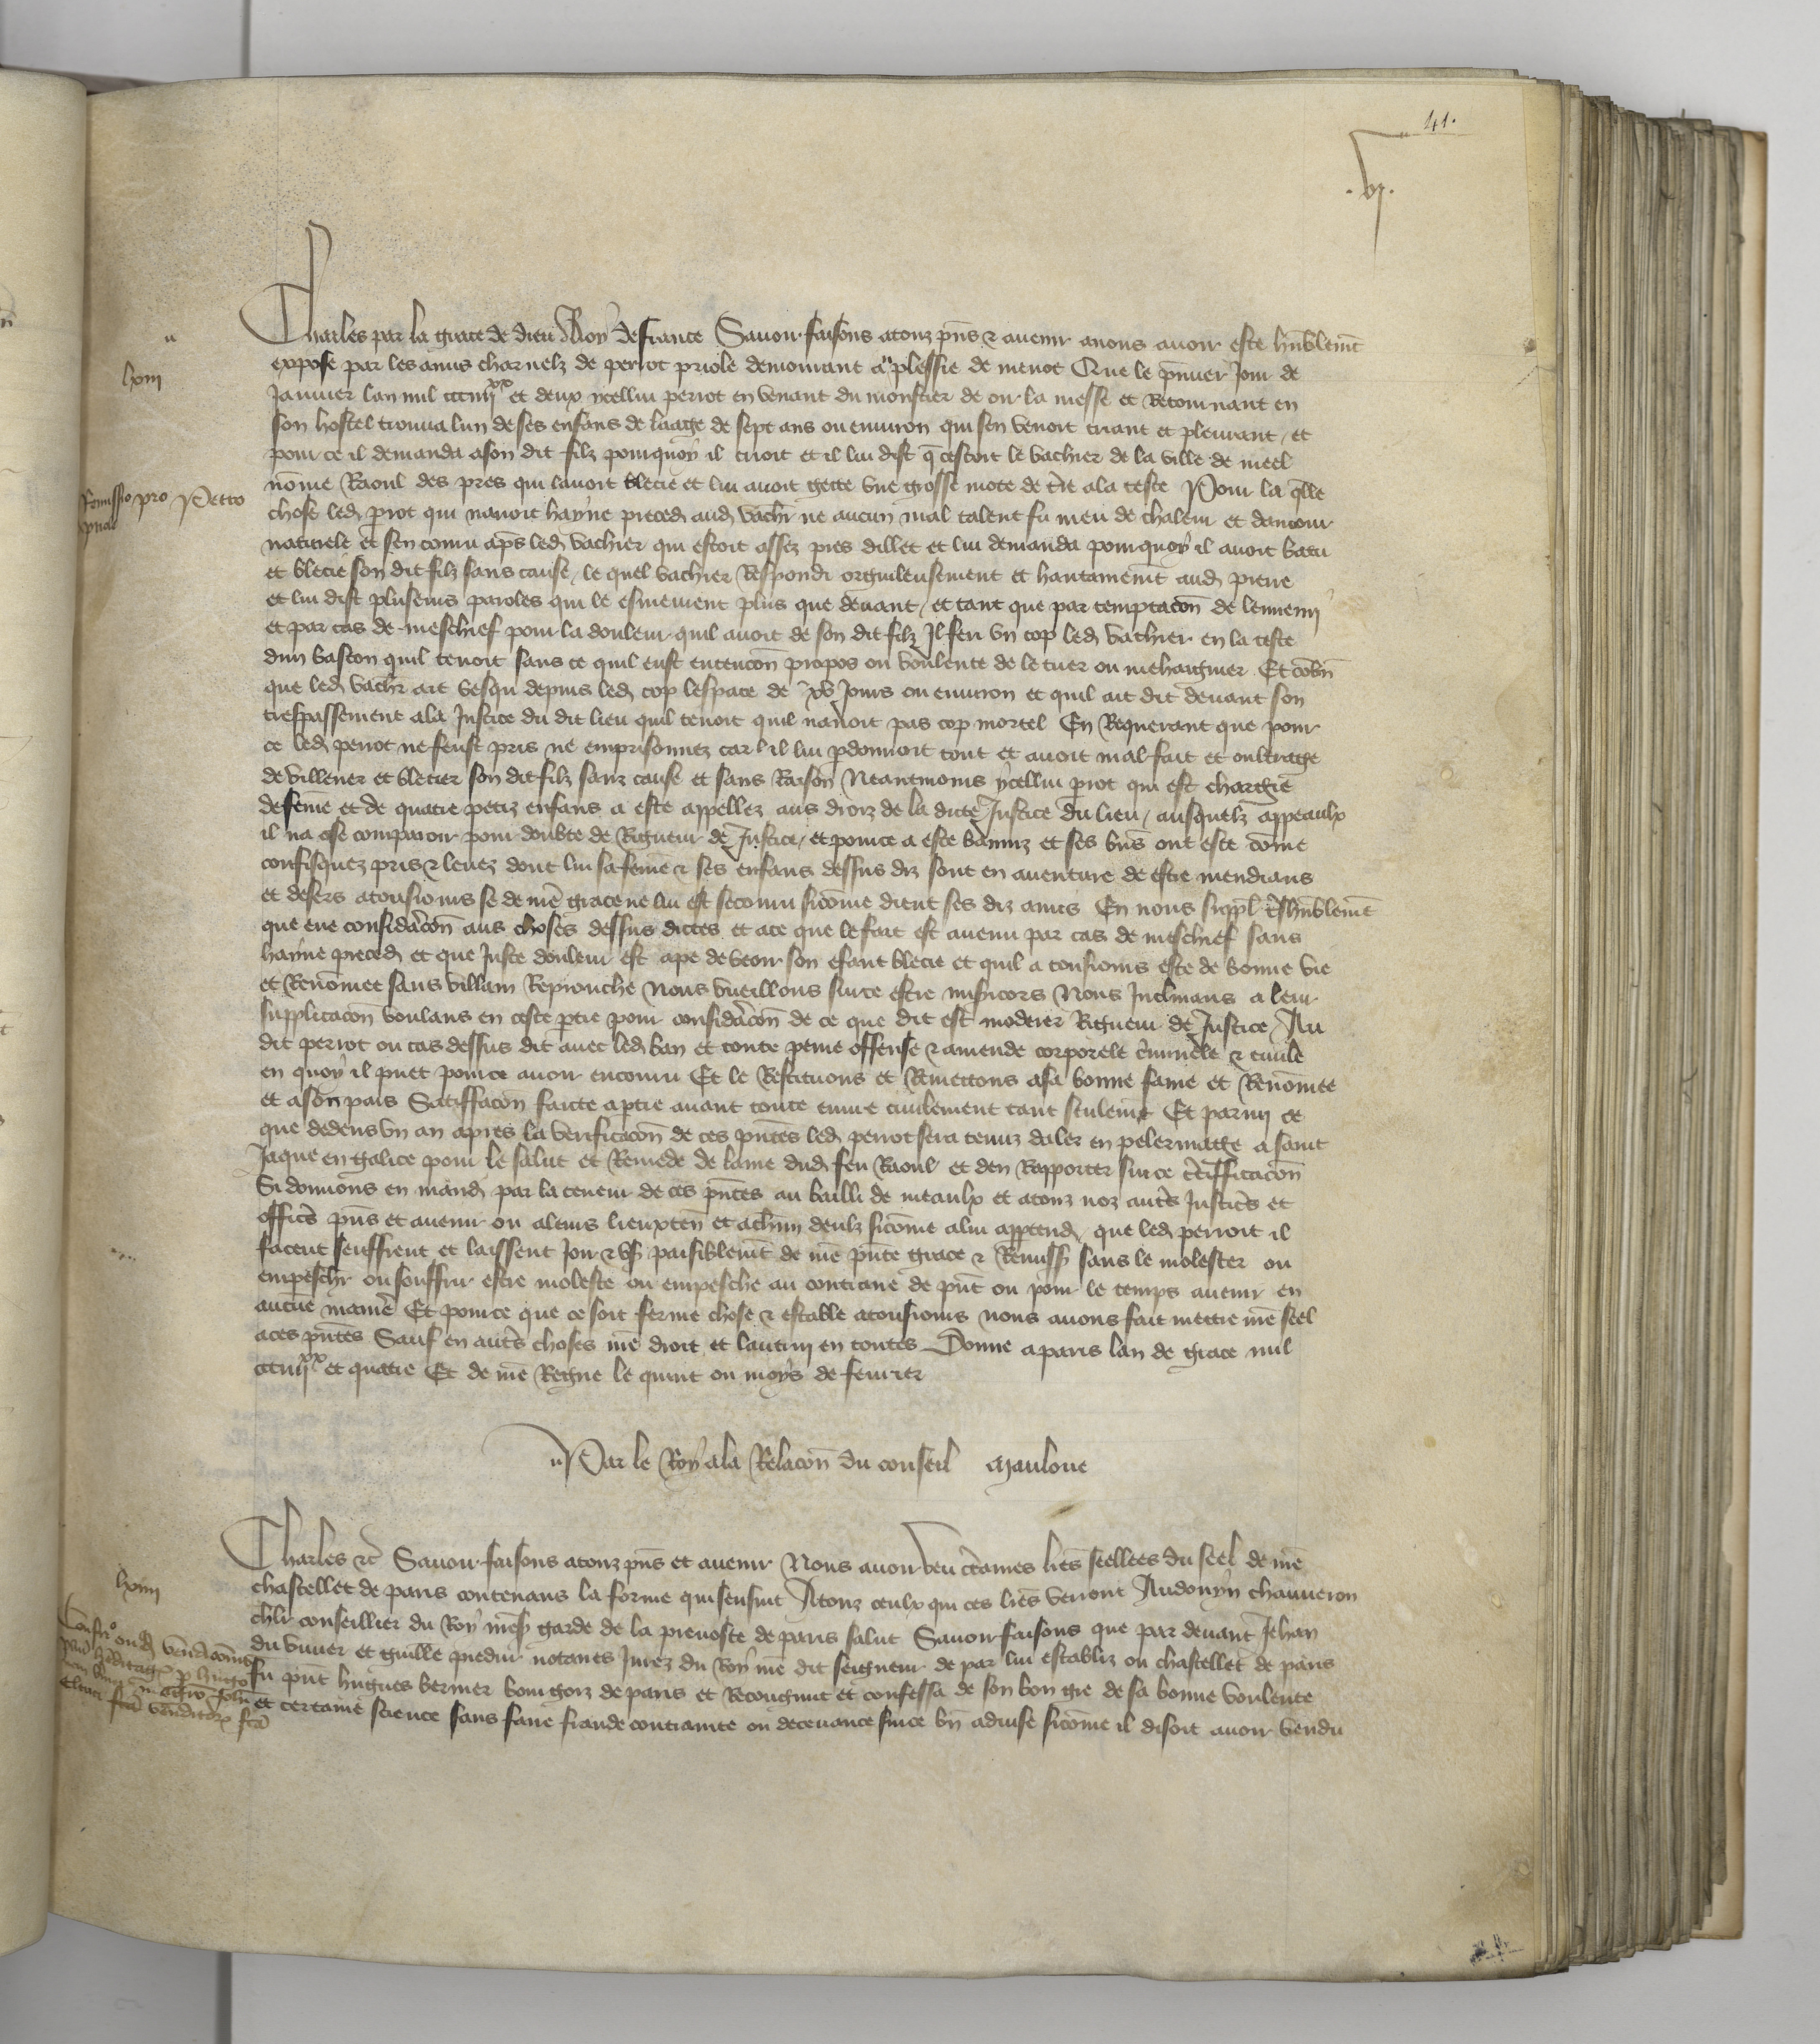 41.
.vj.
Charles par la grace de dieu Roy de france Sauoir faisons a touz pn̄s & auenir a nous auoir este hūblemt̄
lxiii
expose par les amis charnelz de perrot priole demourant au plessie de menot Que le pmier Jour de
Januier lan mil ccciiijxx et deux ycellui perrot en venant du moustier de oir la messe et Retournant en
son hostel trouua lun de ses enfans de laage de sept ans ou enuiron qui sen venoit criant et pleurant / et
pour ce il demanda a son dit filz pourquoy il crioit et il lui dist q̄ cestoit le vachier de la ville de meel
Remissio pro Petro
nōme Raoul des pres qui lauoit blecie et lui auoit gette vne grosse mote de tr̄e a la teste Pour la q̄lle
chose led. prot qui nauoit hayne preced. aud. vachr̄ ne aucun mal talent fu meu de chaleur et damour
naturele et sen couru ap̄s led. vachier qui estoit assez pres dillec et lui demanda pourquoy il auoit batu
et blecie son dit filz sans cause / le quel vachier Respondi orguileusement et hautainemt̄ aud. pierre
et lui dist pluseurs paroles qui le esmeurent plus que deuant / et tant que par temptacōn de lennemy
et par cas de meschief pour la douleur quil auoit de son dit filz Il feri vn cop led. vachier en la teste
dun baston quil tenoit sans ce quil eust entencōn propos ou voulente de le tuer ou mehaignier Et cōbn̄
que led. vachr̄ ait vesqu depuis led. cop lespace de xv Jours ou enuiron et quil ait dit deuant son
trespassement a la Justice du dit lieu quil tenoit quil nauoit pas cop mortel En Requerant que pour
ce led. perrot ne feust pris ne emprisonnez car il lui pdonnoit tout et auoit mal fait et oultrage
de villener et blecier son dit filz sanz cause et sans Raison Neantmoins ycellui prot qui est chargie
de feme et de quatre petiz enfans a este appellez aus droiz de la dicte Justice du lieu / ausquelz appeaulx
il na ose comparoir pour doubte de Rigueur de Justice / et pource a este banniz et ses bn̄s ont este cōme
confisquez pris & leuez dont lui sa feme & ses enfans dessus diz sont en auenture de estre mendians
et desers a tousiours se de nr̄e grace ne lui est secouru sicōme dient ses diz amis En nous suppl. tr̄shūblemt̄
que eue considēracōn aus choses dessus dictes et a ce que le fait est auenu par cas de meschief sans
hayne preced. et que Juste douleur est a pe de veoir son efant blecie et quil a tousiours este de bonne vie
et Renōmee sans villain Reprouche Nous vueillons sur ce estre misicors Nous Inclinans a leur
supplicacōn voulans en ceste ptie pour considēracōn de ce que dit est moderer Rigueur de Justice / Au
dit perrot ou cas dessus dit auec led. ban et toute peine offense & amende corporele cr̄iminele & ciuile
en quoy il puet pour ce auoir encouru Et le Restituons et Remettons a sa bonne fame et Renōmee
et a son pais Satiffacōn faicte a ptie auant toute euure ciuilement tant seulemt̄ Et parmi ce
que dedens vn an apres la verificacōn de ces pn̄tes led. perrot sera tenuz daler en pelerinatge a saint
Jaque en galice pour le salut et Remede de lame dud. feu Raoul et den Rapporter sur ce cr̄tifficacōn
Si donnons en mand. par la teneur de ces pn̄tes au bailli de meaulx et a touz noz autr̄s Justicr̄s et
officr̄s pn̄s et auenir ou a leurs lieuxten̄ et a chūn deulz sicōme a lui apptend. que led. perrot il
facent seuffrent et laissent Joir & vs. paisiblemt̄ de nr̄e pn̄te grace & Remiss. sans le molester ou
empeschr̄ ou souffrir estre moleste ou empesche au contraire de pn̄t ou pour le temps auenir en
aucūe manier̄ Et pource que ce soit ferme chose & estable a tousiours nous auons fait mettre nr̄e seel
a ces pn̄tes Sauf en autr̄s choses nr̄e droit et lautrui en toutes Donne a paris lan de grace mil
ccciiijxx et quatre Et de nr̄e Regne le quint ou moys de feurier
Par le Roy a la Relacōn du conseil Mauloue
Charles &c̄ Sauoir faisons a touz pn̄s et auenir Nous auoir veu cr̄taines lr̄es seellees du seel de nr̄e
lxiiii
chastellet de paris contenans la forme qui sensuit A touz ceulx qui ces lr̄es verront Audouyn chauueron
chlr̄ conseillier du Roy nr̄es. garde de la preuoste de paris salut Sauoir faisons que par deuant Jehan
du viuier et guille piedur notaires Jurez du Roy nr̄e dit seigneur de par lui establiz ou chastellet de paris
fu pn̄t hugues bernier bourgoiz de paris et Recongnut et confessa de son bon gre de sa bonne voulente
et certaine science sans faire fraude contrainte ou deceuance sur ce bn̄ aduise sicōme il disoit auoir vendu